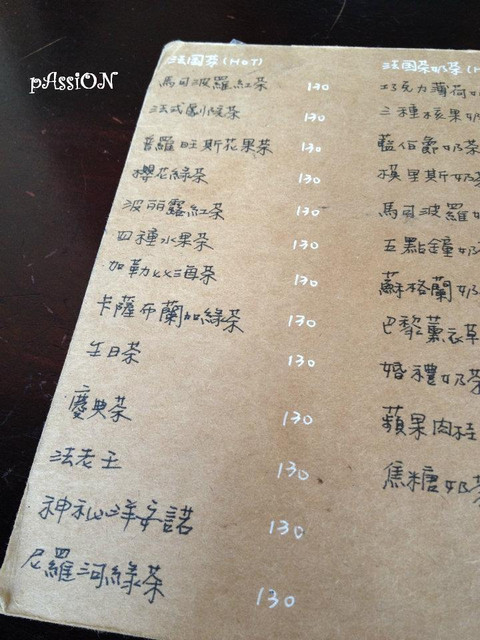 pAssiON
法國茶(HOT)
馬可波羅紅茶 130
法式劇院茶 130
普羅旺斯花果茶 130
櫻花綠茶 130
波麗露紅茶 130
四種水果茶 130
加勒比海茶 130
卡薩布蘭加綠茶 130
生日茶 130
慶典茶 130
法老王 130
神祕峇里諾 130
尼羅河綠茶 130
法國茶奶茶(H
巧克力薄荷奶
三種核果奶
藍伯爵奶茶
模里斯奶
馬可波羅奶
五點鐘奶
蘇格蘭奶
巴黎薰衣草
婚禮奶茶
蘋果肉桂
焦糖奶茶